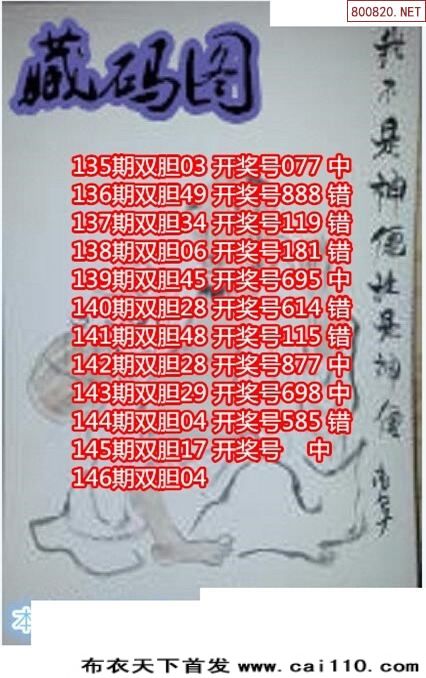 800820.NET
藏码图
我不是神仙
135期双胆03 开奖号077 中
136期双胆49 开奖号888 错
137期双胆34 开奖号119 错
138期双胆06 开奖号181 错
139期双胆45 开奖号695 中
140期双胆28 开奖号614 错
141期双胆48 开奖号115 错
142期双胆28 开奖号877 中
143期双胆29 开奖号698 中
144期双胆04 开奖号585 错
145期双胆17 开奖号 中
146期双胆04
本
布衣天下首发 www.cai110.com